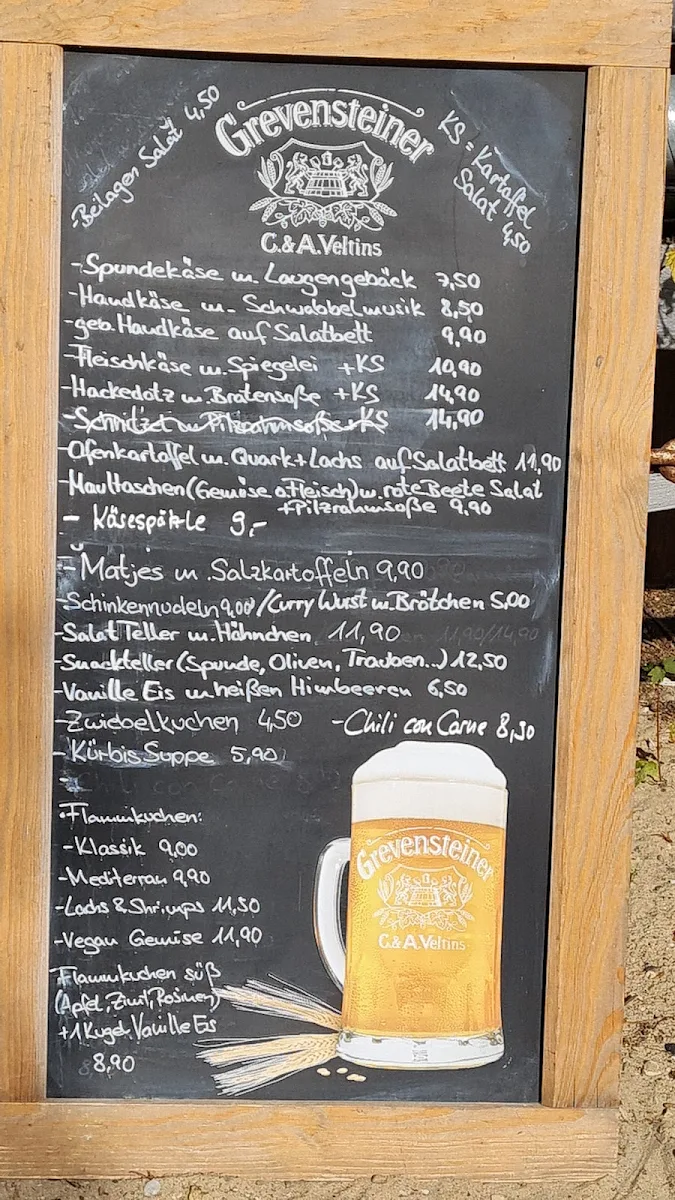 - Beilagen Salat 4,50
Grevensteiner
C. & A. Veltins
KS = Kartoffel
Salat 4,50
- Spundekäse m. Laugengebäck 7,50
- Handkäse m. Schwabbelmusik 8,50
- geb. Handkäse auf Salatbett 9,90
- Fleischkäse m. Spiegelei + KS 10,90
- Hackedotz m. Bratensoße + KS 14,90
- Schnitzel m. Pilzrahmsoße + KS 14,90
- Ofenkartoffel m. Quark + Lachs auf Salatbett 11,90
- Maultaschen (Gemüse o. Fleisch) m. rote Beete Salat
+ Pilzrahmsoße 9,90
- Käsespätzle 9,-
- Matjes m. Salzkartoffeln 9,90
- Schinkennudeln 9,00 / Curry Wurst m. Brötchen 5,00
- Salat Teller m. Hähnchen 11,90
- Snackteller (Spunde, Oliven, Trauben...) 12,50
- Vanille Eis m heißen Himbeeren 6,50
- Zwiebelkuchen 4,50 - Chili con Carne 8,50
- Kürbis Suppe 5,90
-
• Flammkuchen:
- Klassik 9,00
- Mediterran 9,90
- Lachs & Shrimps 11,50
- Vegan Gemüse 11,90
Flammkuchen süß
(Apfel, Zimt, Rosinen)
+ 1 Kugel Vanille Eis
8,90
Grevensteiner
C. & A. Veltins